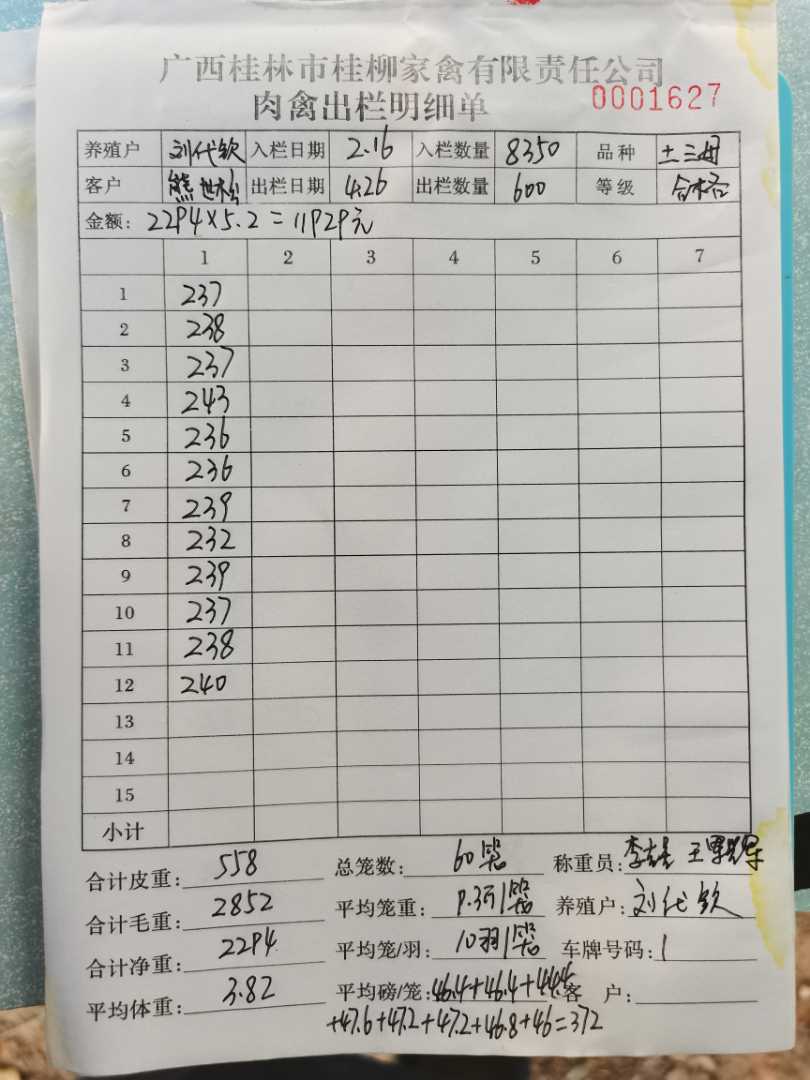 广西桂林市桂柳家禽有限责任公司
肉禽出栏明细单 0001627
养殖户 刘代钦 入栏日期 2.16 入栏数量 8350 品种 土三母
客户 熊世松 出栏日期 4.26 出栏数量 600 等级 合格
金额: 2294×5.2=11929元
1 2 3 4 5 6 7
1 237
2 238
3 237
4 243
5 236
6 236
7 239
8 232
9 239
10 237
11 238
12 240
13
14
15
小计
合计皮重: 558 总笼数: 60笼 称重员:
合计毛重: 2852 平均笼重: 9.3/笼 养殖户: 刘代钦
合计净重: 2294 平均笼/羽: 10羽/笼 车牌号码: 1
平均体重: 3.82 平均磅/笼: 46.4+46.4+44.4 客 户:
+47.6+47.2+47.2+46.8+46=372